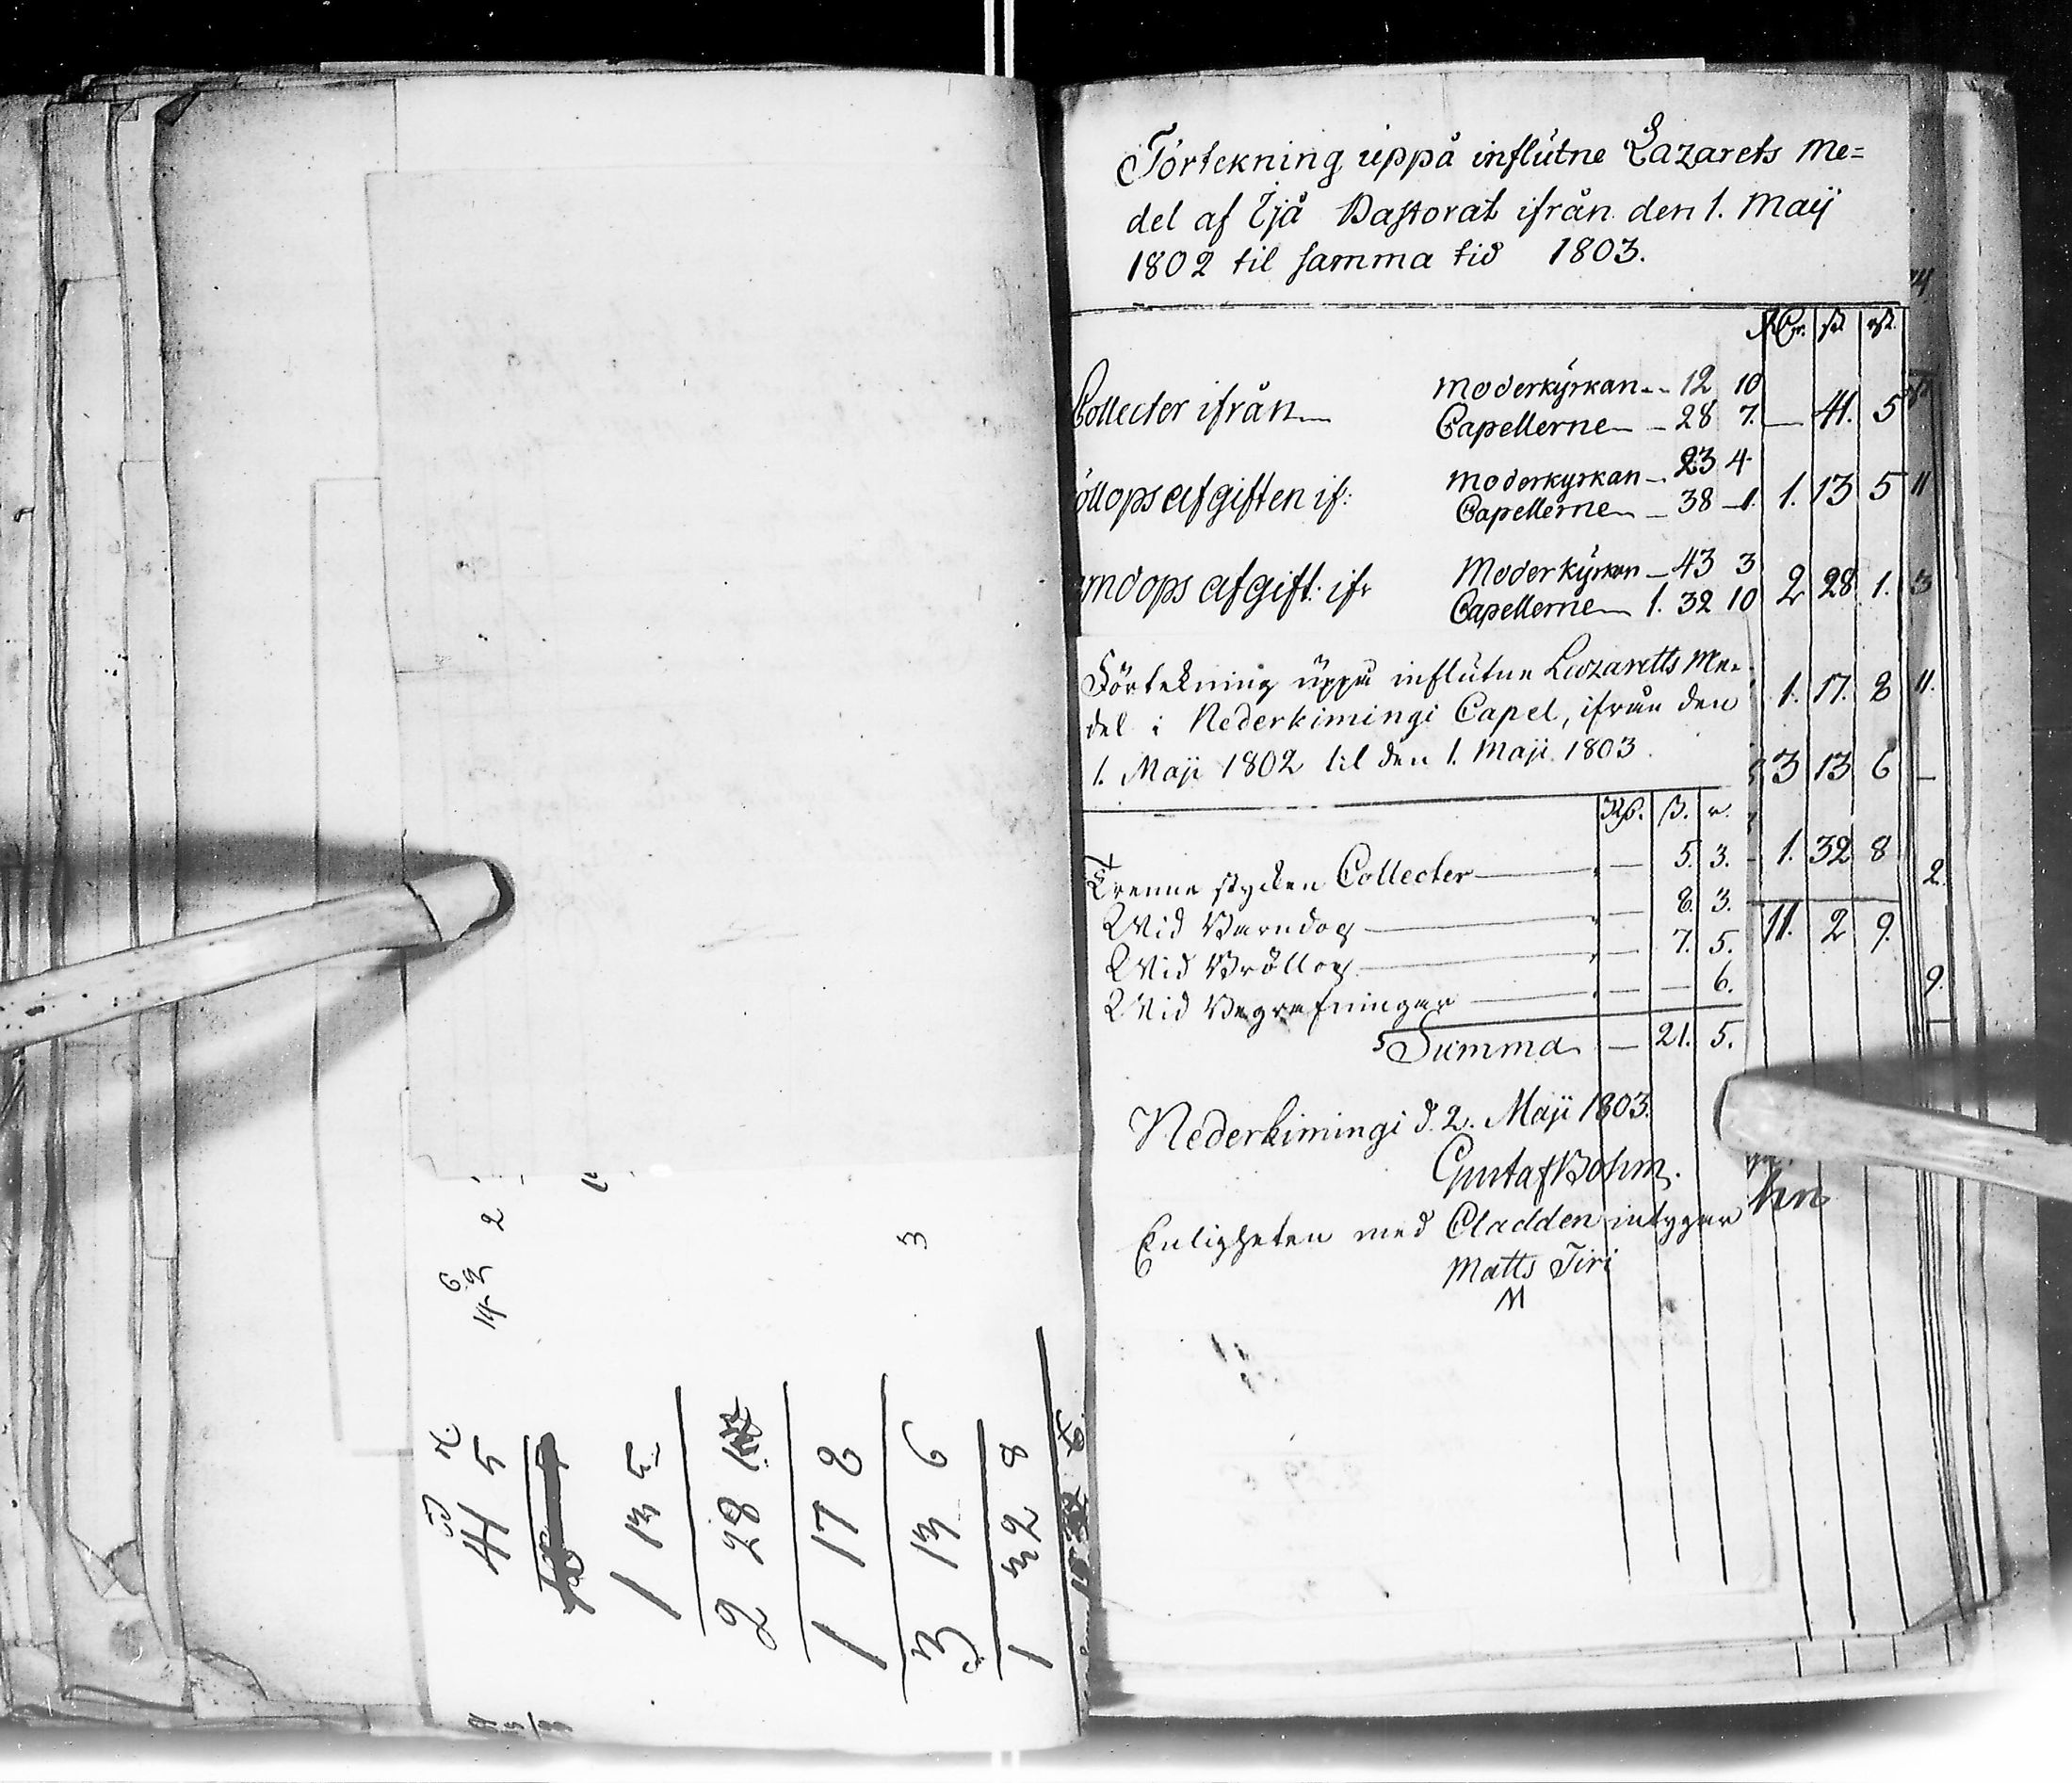 41 5
1 13 5
2 28
1 17 8
3 13 6
1 32 8
3
Förtekning uppå influtne Lazarets Me=
del af Ijå Pastorat ifrån den 1. Maij
1802 til samma tid 1803.
Collecter ifrån Moderkyrkan 12 10
Capellerne 28 7. — 41. 5
öllops afgiften if: Moderkyrkan 23 4
Capellerne 38 1. 1. 13 5
rndops afgift: ifr Moderkyrkan 43 3
Capellerne 1. 32 10 2 28 1.
1. 17. 8
3 13 6
1. 32 8
11. 2 9.
Förtekning uppå influtne Lazaretts Me-
del i Nederkimingi Capel, ifrån den
1. Maji 1802 til den 1. Maji 1803.
Trenne stycken Collecter — 5. 3.
Wid Barndop — 8. 3.
Wid Bröllop — 7. 5.
Wid Begrafningar — — 6.
Summa — 21. 5.
Nederkimingi d. 2. Maji 1803.
Gustaf Bohm.
Enligheten med Cladden intygar
Matts Jiri
M